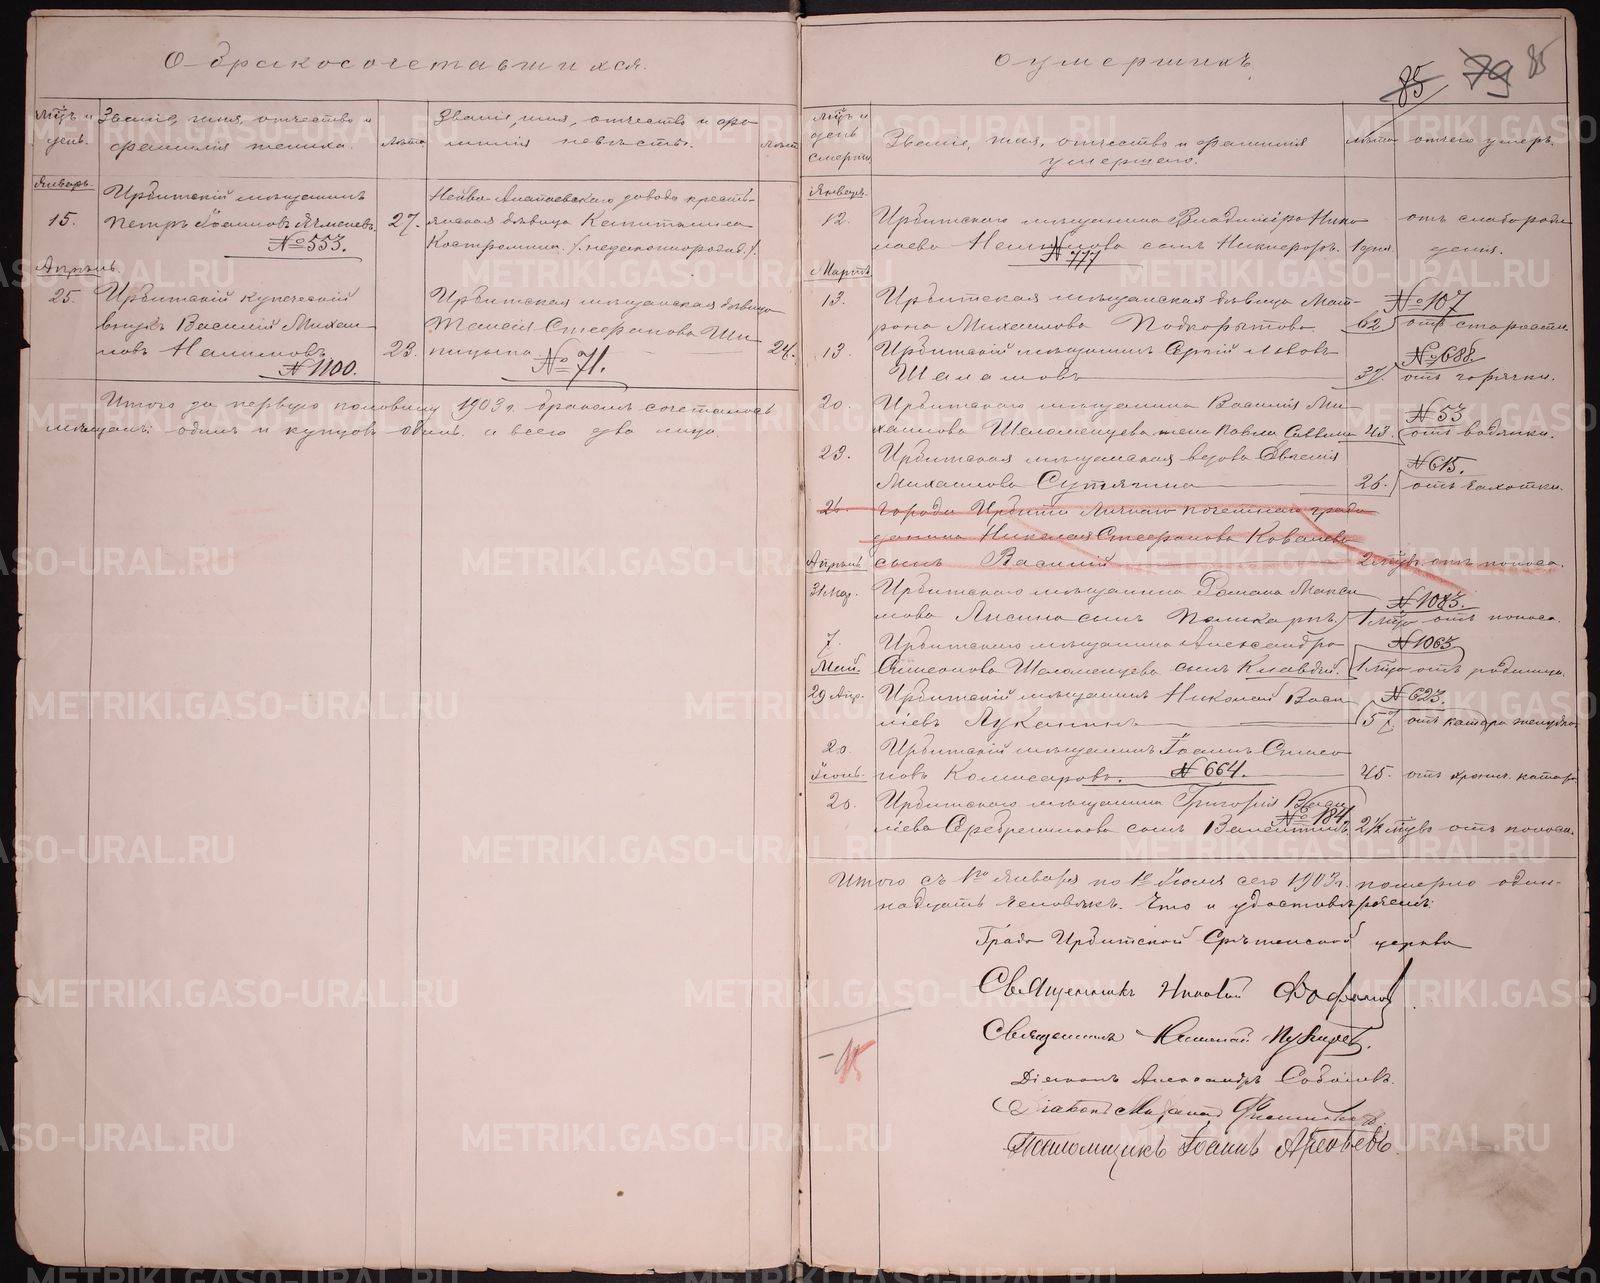 О бракосочетавшихся.
Мѣцъ и день.
Званіе, имя, отчество и фамилія жениха.
Лѣта
Званіе, имя, отчество и фамилія невѣсты.
Лѣта
Январь.
15.
Ирбитскій мѣщанинъ
Петръ Іоанновъ Ячменевъ.
№ 553.
27.
Нейво-Алапаевскаго завода кресть-
янская дѣвица Капиталина
Костромина.
Апрѣль.
25.
Ирбитскій купеческій
внукъ Василій Михаи-
ловъ Налимовъ
№ 1100.
23.
Ирбитская мѣщанская дѣвица
Таисія Стефанова Ши-
пицына
№ 71.
24.
Итого за первую половину 1903 г. бракомъ сочеталось
мѣщанъ одинъ и купцовъ одинъ, а всего два лица.
О умершихъ
85 79 85
Мѣцъ и день смерти
Званіе, имя, отчество и фамилія
умершаго.
Лѣта
отчего умеръ.
Январь.
12.
Ирбитскаго мѣщанина Владиміра Нико-
лаева Налимова сынъ Никифоръ.
1 дня
отъ слаборож-
денія.
№ 777
Мартъ
13.
Ирбитская мѣщанская дѣвица Мат-
рона Михаилова Подкорытова
62
№ 107
отъ старости.
13.
Ирбитскій мѣщанинъ Сергій Львовъ
Шаламовъ
37.
№ 688.
отъ горячки.
20.
Ирбитскаго мѣщанина Василія Ми-
хаилова Шеломенцева жена Павла Саввина
43.
№ 53
отъ водянки.
23.
Ирбитская мѣщанская вдова Евгенія
Михаилова Сутягина
26.
№ 615.
отъ чахотки.
26
города Ирбита Личнаго почетнаго граж-
данина Николая Стефанова Ковалева
сынъ Василій
2 мѣцъ отъ поноса.
Апрѣль
31 Мар.
Ирбитскаго мѣщанина Романа Макси-
мова Лисина сынъ Поликарпъ
№ 1083.
1 мѣца отъ поноса.
7.
Ирбитскаго мѣщанина Александра
Симеонова Шеломенцева сынъ Клавдій.
№ 1063
1 мѣца отъ родимца.
Май.
29 Апр.
Ирбитскій мѣщанинъ Николай Васи-
ліевъ Луканинъ
57.
№ 623.
отъ катара желудка
20.
Ирбитскій мѣщанинъ Іоаннъ Симео-
новъ Комисаровъ.
№ 664.
45.
отъ хронич. катара
Іюнь.
20.
Ирбитскаго мѣщанина Григорія Васи-
ліева Серебренникова сынъ Валентинъ
№ 184
2 1/2 мѣцъ отъ поноса.
Итого съ 1го Января по 1е Іюля сего 1903 г. померло один-
надцать человѣкъ. Что и удостовѣряемъ:
Града Ирбитской Срѣтенской церкви
Священникъ Николай
Священникъ Николай
Діаконъ Александръ Соболевъ.
Діаконъ
Псаломщикъ Іоаннъ Арефьевъ.
METRIKI.GASO-URAL.RU